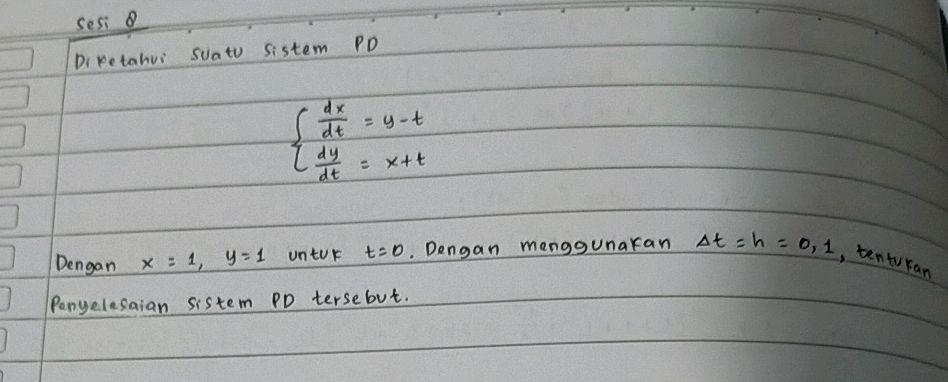 Sesi 8
Diketahui suatu sistem PD
dx/dt = y-t
dy/dt = x+t
Dengan x = 1, y=1 untuk t=0. Dengan menggunakan Δt = h = 0,1, tentukan
Penyelesaian sistem PD tersebut.